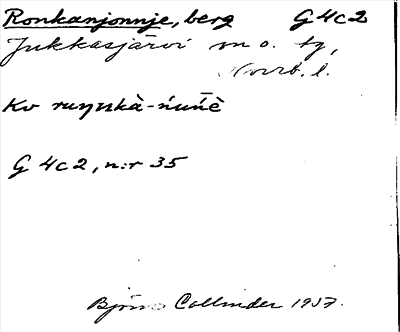 Ronkanjonnje, berg G4c2
Jukkasjärvi sn o. tg,
Norrb. l.
Kv
G 4c2, n:r 35
Björn Collinder 1957.